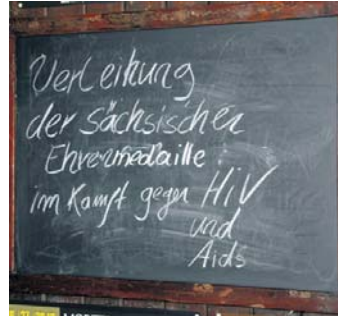 Verleihung
der sächsischen
Ehrenmedaille:
im Kampf gegen HiV
und
Aids